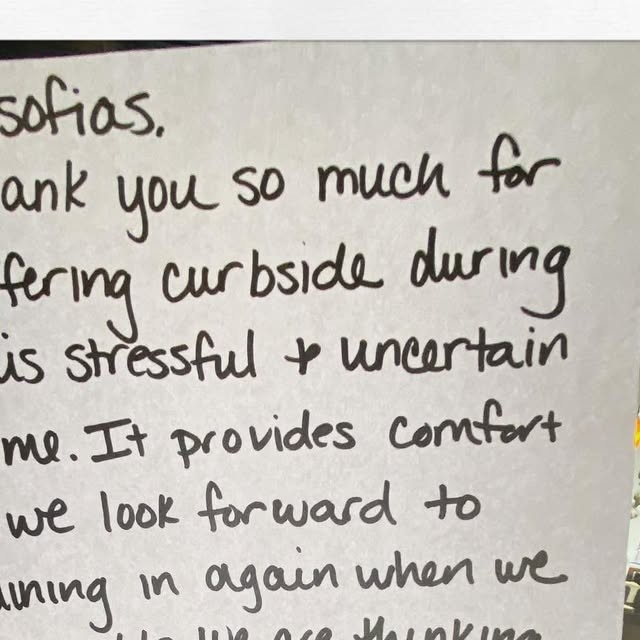 sofias.
ank you so much for
fering curbside during
is stressful & uncertain
me. It provides comfort
we look forward to
ining in again when we
we are thinking